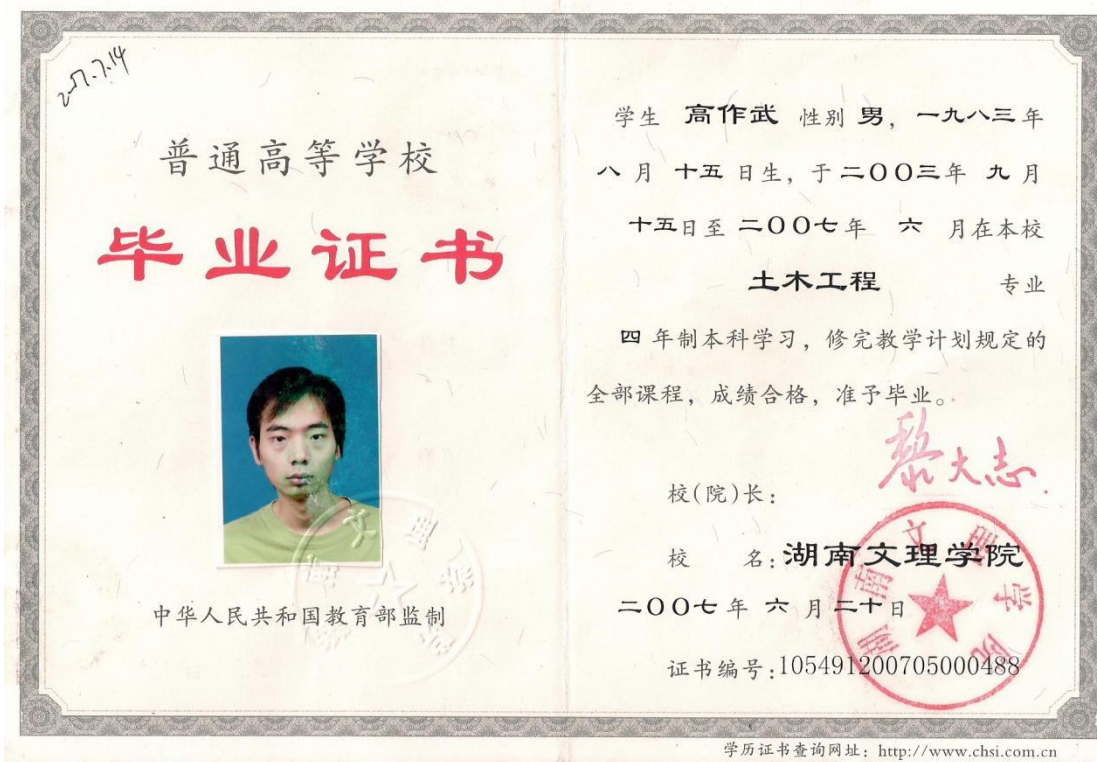 普通高等学校
毕业证书
中华人民共和国教育部监制
学生 高作武 性别 男，一九八三年
八月 十五 日生，于二〇〇三年 九月
十五日至 二〇〇七年 六 月在本校
土木工程 专业
四 年制本科学习，修完教学计划规定的
全部课程，成绩合格，准予毕业。
校(院)长：
黎大志
校 名：湖南文理学院
二〇〇七年 六 月二十日
湖南文理学院
证书编号：105491200705000488
学历证书查询网址：http://www.chsi.com.cn